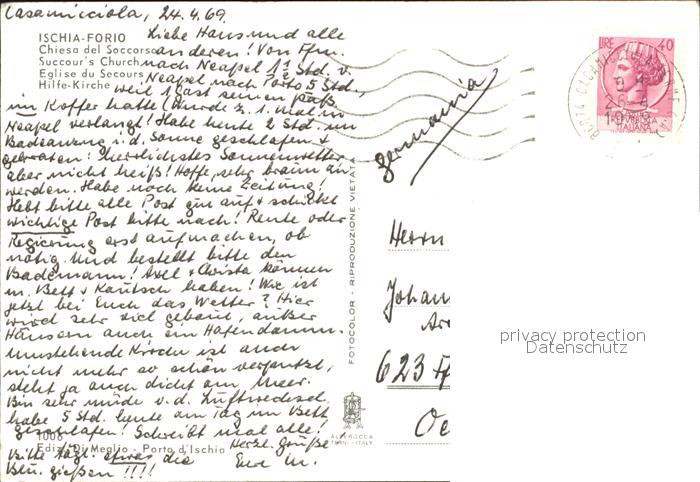 Casamicciola, 24.4.69.
ISCHIA-FORIO
Chiesa del Soccorso
Succour's Church
Eglise du Secours
Hilfe-Kirche
Liebe Hans und alle
anderen! Von Ffm.
nach Neapel 1½ Std. v.
Neapel nach Porto 5 Std.,
weil 1 Gast seinen Paß
im Koffer hatte (wurde z. 1. mal in
Neapel verlangt! Habe heute 2 Std. im
Badeanzug i. d. Sonne geschlafen +
gebraten! Herrlichstes Sonnenwetter
aber nicht heiß! Hoffe, sehr braun zu
werden. Habe noch keine Zeitung!
Hebt bitte alle Post gut auf + schickt
wichtige Post bitte nach! Rente oder
Regierung erst aufmachen, ob
nötig. Und bestellt bitte den
Bademann! Axel + Christa können
m. Bett + Kautsch haben! Wie ist
jetzt bei Euch das Wetter? Hier
wird sehr viel gebaut, außer
Häusern auch ein Hafendamm.
Umstehende Kirche ist auch
nicht mehr so schön verputzt,
steht ja auch dicht am Meer.
Bin sehr müde v. d. Luftwechsel,
habe 5 Std. heute am Tag im Bett
geschlafen! Schreibt mal alle!
1006
Herzl. Grüße
Ediz. Di Meglio - Porto d'Ischia
Bitte tägl. etwas die
Eure M.
Blu. gießen!!!!
FOTOCOLOR - RIPRODUZIONE VIETATA
ALTEROCCA
TERNI - ITALY
Germania
LIRE 40
ITALIANA
1969
Herrn
Johan
623 Ff
Oe
privacy protection
Datenschutz